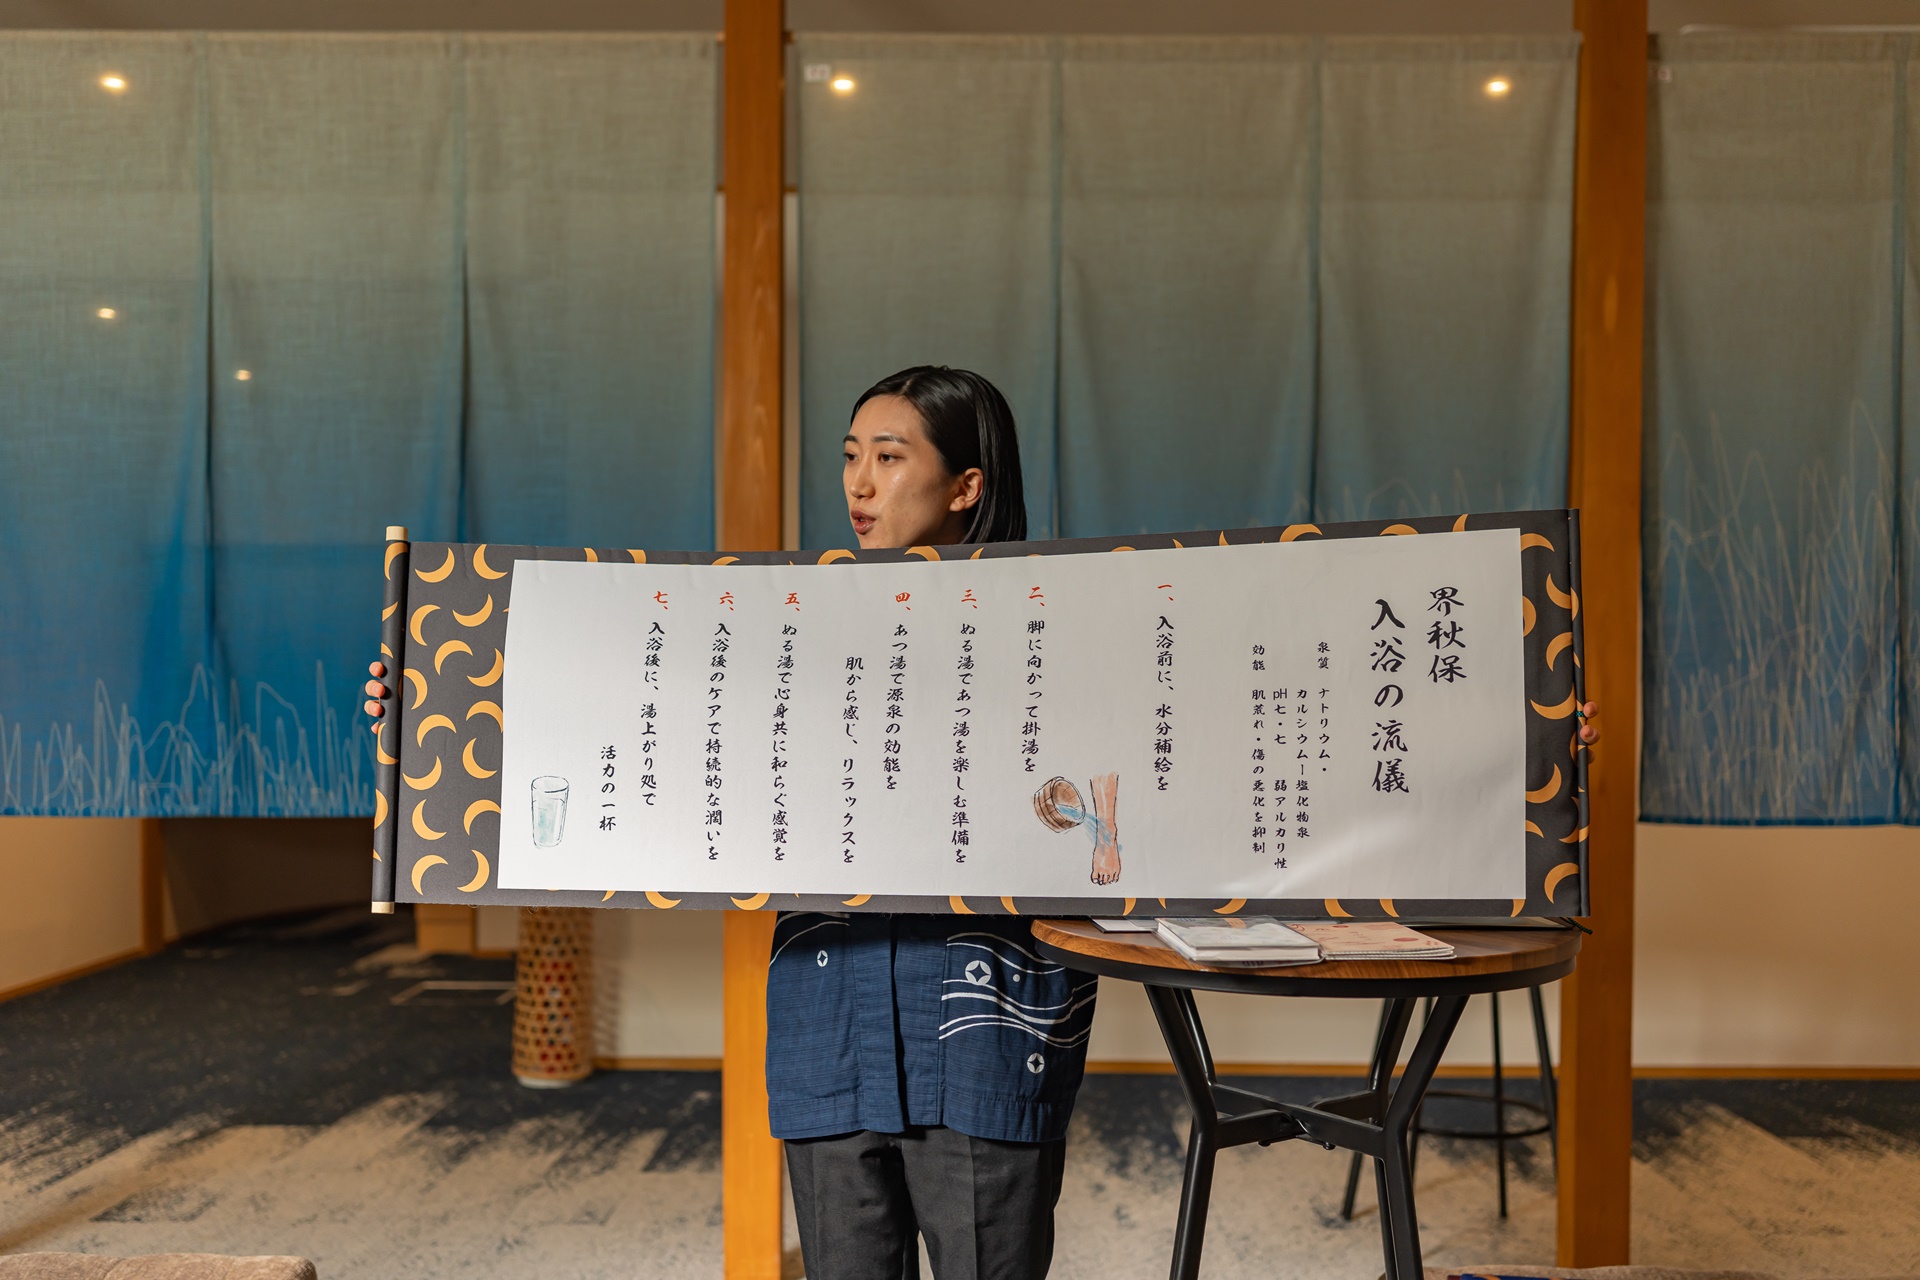 界秋保
入浴の流儀
泉質 ナトリウム・
カルシウムー塩化物泉
pH七・七 弱アルカリ性
効能 肌荒れ・傷の悪化を抑制
一、入浴前に、水分補給を
二、脚に向かって掛湯を
三、ぬる湯であつ湯を楽しむ準備を
四、あつ湯で源泉の効能を
肌から感じ、リラックスを
五、ぬる湯で心身共に和らぐ感覚を
六、入浴後のケアで持続的な潤いを
七、入浴後に、湯上がり処で
活力の一杯